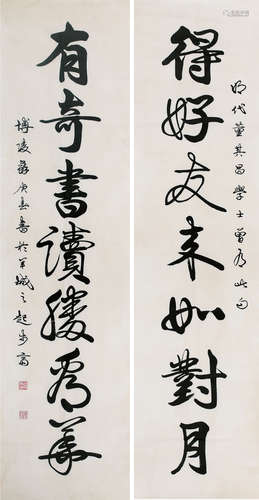 得好友来如對月
明代董其昌學士曾有此句
有奇書讀勝看華
博陵蘇庚春書於羊城之起步齋